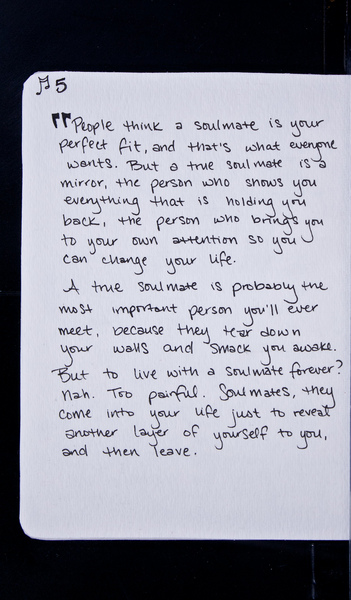 ♬ 5
"People think a soulmate is your
perfect fit, and that's what everyone
wants. But a true soulmate is a
mirror, the person who shows you
everything that is holding you
back, the person who brings you
to your own attention so you
can change your life.
A true soulmate is probably the
most important person you'll ever
meet, because they tear down
your walls and smack you awake.
But to live with a soulmate forever?
Nah. Too painful. Soulmates, they
come into your life just to reveal
another layer of yourself to you,
and then leave.